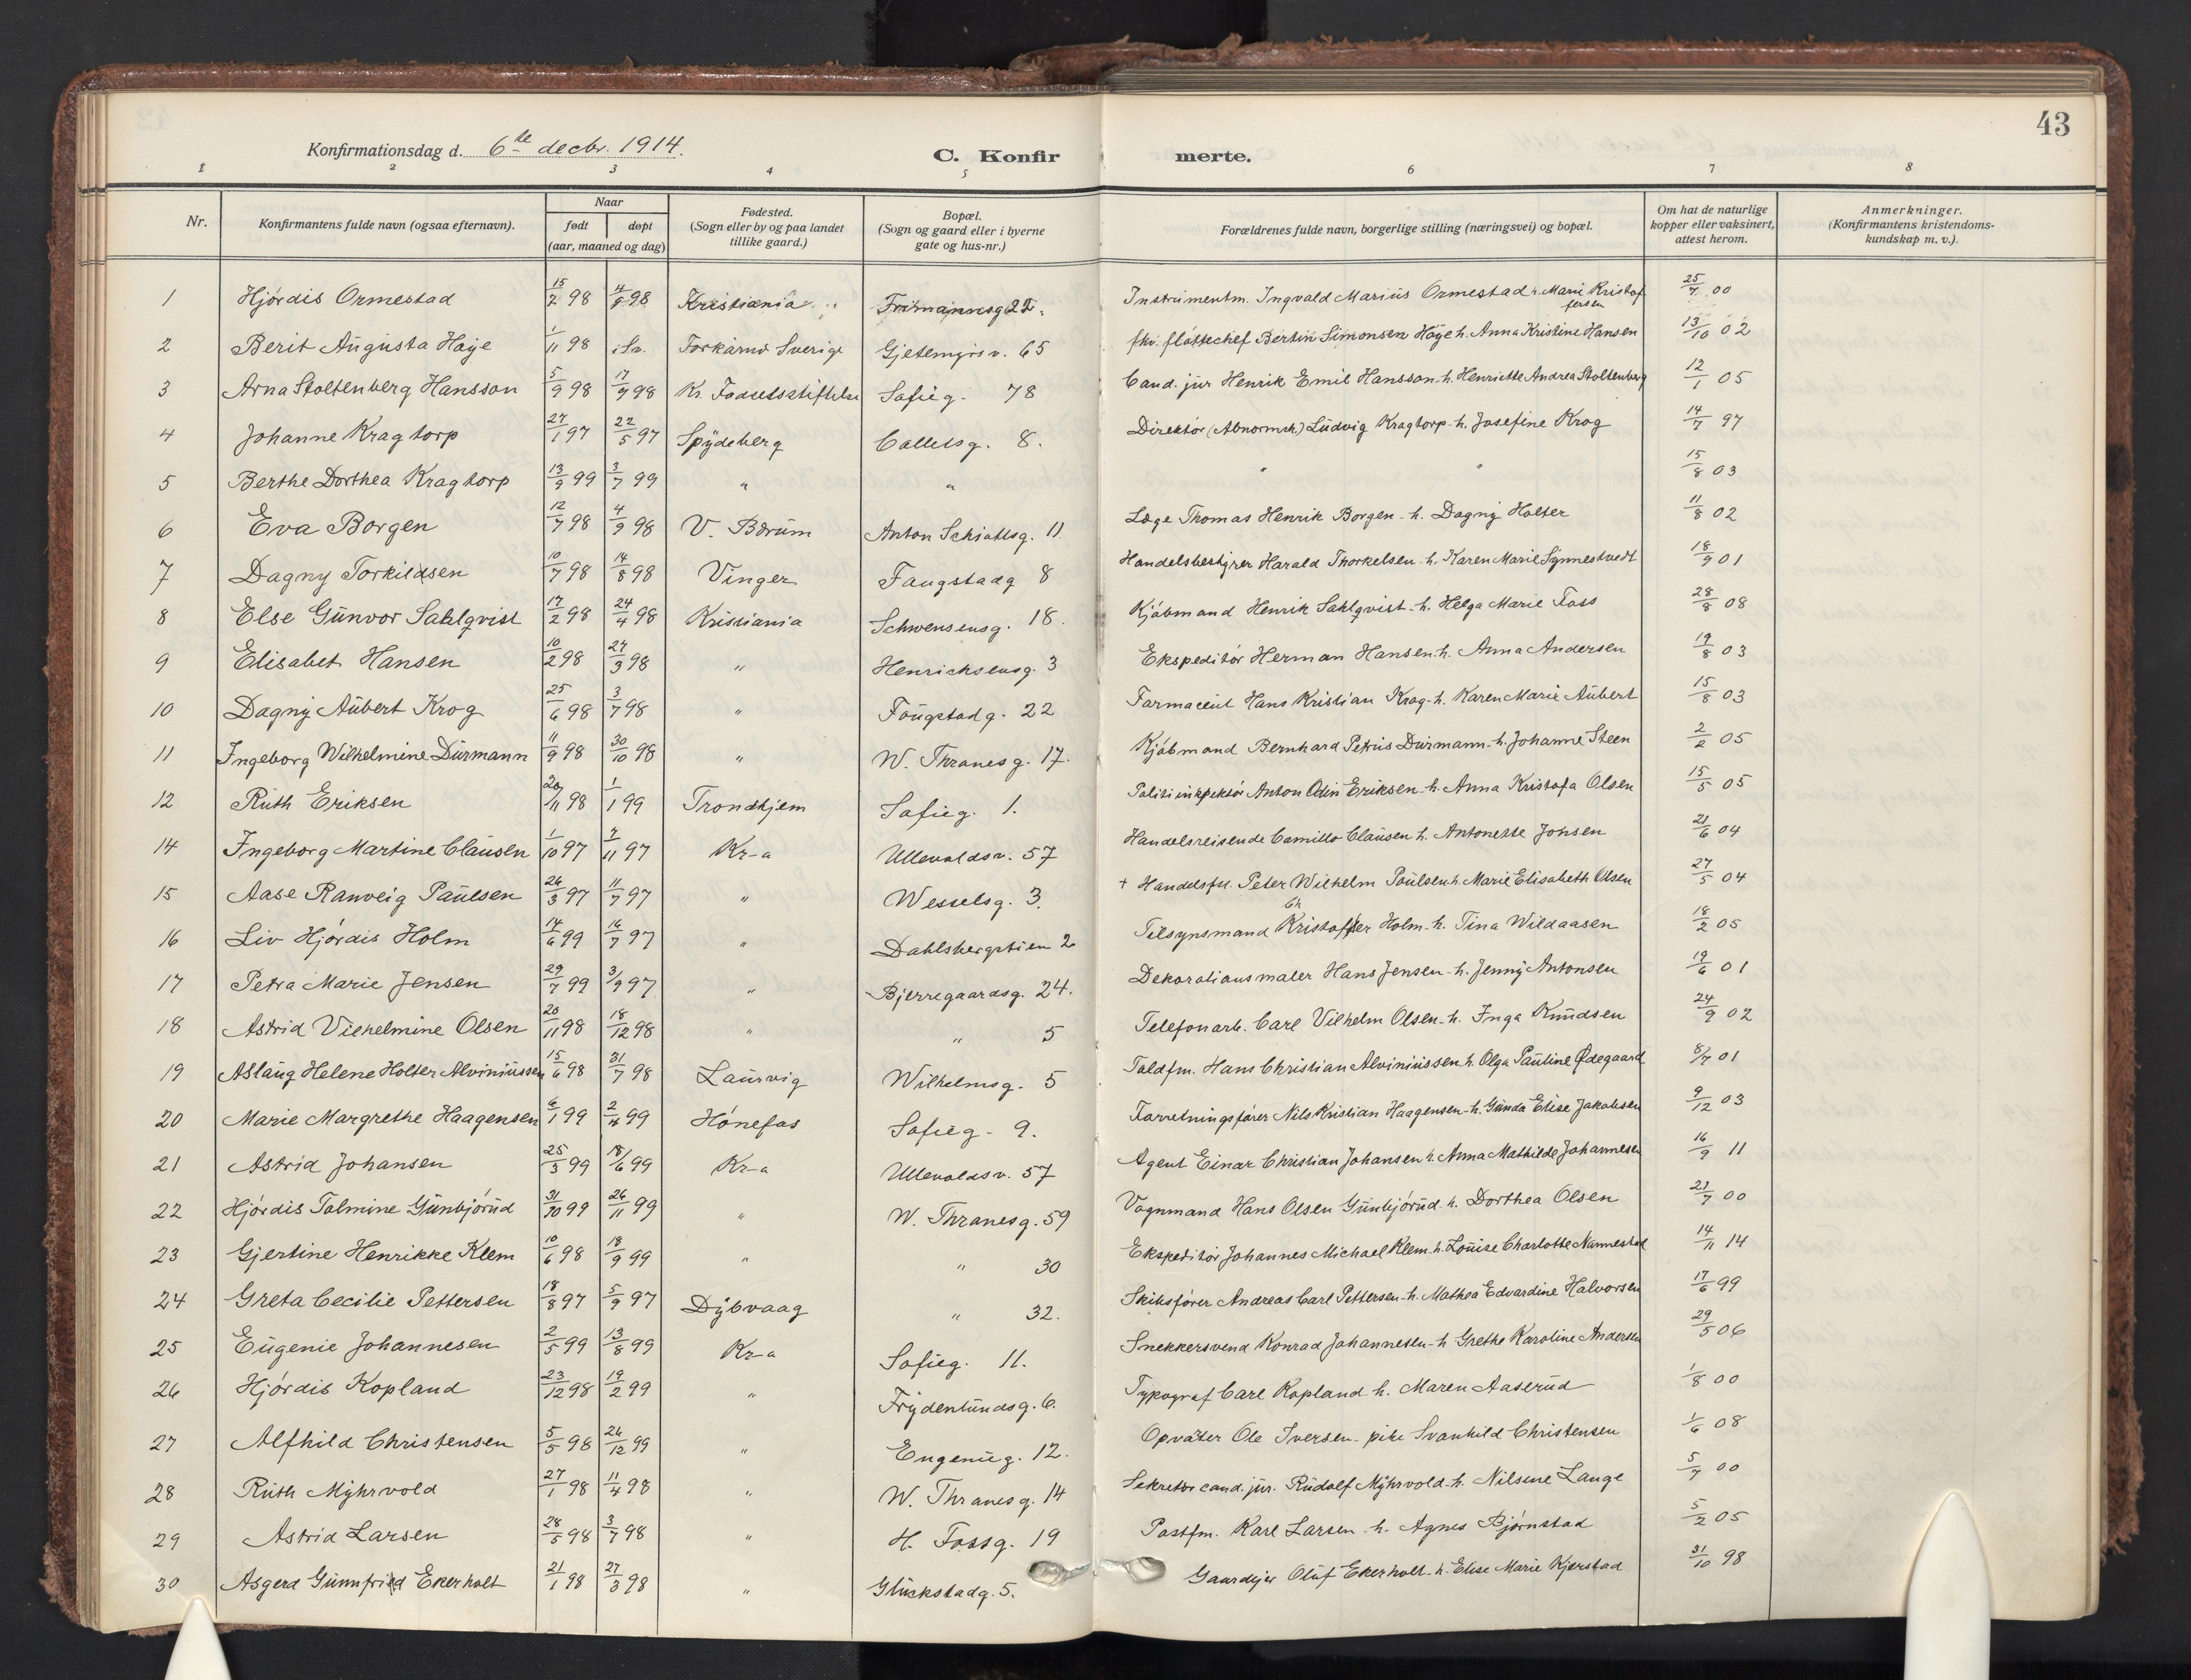 43
Konfirmationsdag d. 6te decbr. 1914.
C. Konfirmerte.
1 2 3 4 5 6 7 8
Nr. | Konfirmantens fulde navn (ogsaa efternavn). | Naar født | døpt (aar, maaned og dag) | Fødested. (Sogn eller by og paa landet tillike gaard.) | Bopæl. (Sogn og gaard eller i byerne gate og hus-nr.) | Forældrenes fulde navn, borgerlige stilling (næringsvei) og bopæl. | Om hat de naturlige kopper eller vaksinert, attest herom. | Anmerkninger. (Konfirmantens kristendoms-kundskap m. v.).
1 Hjórdis Ormestad 15/2 98 98 Kristiania 22. Instrumentm. Ingvald Marius Ormestad h. Marie Kristoffersen 25/7 00
2 Berit Augusta Høye 1/11 98 i Sv. Sverige 65 Bertin Simonsen Höye h. Anna Kristine Hansen 13/10 02
3 Arna Stoltenberg Hansson 5/9 98 17/9 98 Kr. Fødselsstiftelse Sofieg. 78 Cand. jur Henrik Emil Hansson h. Henriette Andrea Stoltenberg 12/1 05
4 Johanne Kragtorp 27/1 97 22/5 97 Spydeberg Colletsg. 8. Direktór (Abnormsk.) Ludvig Kragtorp h. Josefine Krog 14/7 97
5 Berthe Dorthea Kragtorp 13/9 99 3/7 99 " " " " 15/8 03
6 Eva Borgen 12/7 98 4/9 98 V. Bærum Anton Schiøttsg. 11. Læge Thomas Henrik Borgen h. Dagny Holter 11/8 02
7 Dagny Torkildsen 10/7 98 14/8 98 Vinger Faugstadg 8 Handelsbestyrer Harald Thorkelsen h. Karen Marie Synnestvedt 18/9 01
8 Else Gunvor Sahlqvist 17/2 98 24/4 98 Kristiania Schwensensg. 18. Kjóbmand Henrik Sahlqvist h. Helga Marie Foss 28/8 08
9 Elisabet Hansen 10/2 98 27/3 98 " Henrichsensg. 3 Ekspeditór Herman Hansen h. Anna Andersen 19/8 03
10 Dagny Aubert Krog 25/6 98 3/7 98 " Fougstadg. 22 Farmaceut Hans Kristian Krog h. Karen Marie Aubert 15/8 03
11 Ingeborg Wilhelmine Dürmann 11/9 98 30/10 98 " W. Thranesg. 17. Kjóbmand Bernhard Petrus Dürmann h. Johanne Steen 2/2 05
12 Ruth Eriksen 20/11 98 1/1 99 Trondhjem Sofieg. 1. Politiinspektór Anton Odin Eriksen h. Anna Kristofa Olsen 15/5 05
14 Ingeborg Martine Clausen 1/10 97 7/11 97 Kr-a Ullevoldsv. 57 Handelsreisende Camillo Clausen h. Antonette Jonsen 21/6 04
15 Aase Ranveig Paulsen 26/3 97 11/7 97 " Wesselsg. 3. + Handelsfm. Peter Wilhelm Poulsen h. Marie Elisabeth Olsen 27/5 04
16 Liv Hjórdis Holm 14/6 99 16/7 97 " Dahlsbergstien 2 Tilsynsmand Kristoffer Holm h. Tina Wildaasen 18/2 05
17 Petra Marie Jensen 29/7 99 3/9 97 " Bjerregaardsg. 24. Dekorationsmaler Hans Jensen h. Jenny Antonsen 19/6 01
18 Astrid Vilhelmine Olsen 20/11 98 18/12 98 " " 5 Telefonarb. Carl Vilhelm Olsen h. Inga Knudsen 24/9 02
19 Aslaug Helene Holter Alviniussen 15/6 98 31/7 98 Laurvig Wilhelmsg. 5 Toldfm. Hans Christian Alviniussen h. Olga Pauline Ødegaard 8/7 01
20 Marie Margrethe Haagensen 6/1 99 2/4 99 Hónefos Sofieg. 9. Forretningsfórer Nils Kristian Haagensen h. Gunda Elise Jakobsen 9/12 03
21 Astrid Johansen 25/3 99 18/6 99 Kr-a Ullevoldsv. 57 Agent Einar Christian Johansen h. Anna Mathilde Johannesen 16/9 11
22 Hjórdis Tolmine Gunbjórud 31/10 99 26/11 99 " W. Thranesg. 59 Vognmand Hans Olsen Gunbjórud h. Dorthea Olsen 21/7 00
23 Gjertine Henrikke Klem 10/6 98 18/9 99 " " 30 Ekspeditór Johannes Michael Klem h. Louise Charlotte Nannestad 14/11 14
24 Greta Cecilie Pettersen 18/8 97 5/9 97 Dybvaag " 32. Skibsfórer Andreas Carl Pettersen h. Mathea Edvardine Halvorsen 17/6 99
25 Eugenie Johannesen 2/5 99 13/8 99 Kr-a Sofieg. 11. Snekkersvend Konrad Johannesen h Grethe Karoline Andersen 29/5 06
26 Hjórdis Kopland 23/12 98 19/2 99 " Frydenlundsg. 6. Typograf Carl Kopland h. Maren Aaserud 1/8 00
27 Alfhild Christensen 5/5 98 26/12 99 " Eugenieg. 12. Opvåter Ole Iversen pike Svanhild Christensen 1/6 08
28 Ruth Myhrvold 27/1 98 11/4 98 " W. Thranesg. 14 Sekretær cand. jur. Rudolf Myhrvold h. Nilsine Lange 5/7 00
29 Astrid Larsen 28/5 98 3/7 98 " H. Fossg. 19 Postfm. Karl Larsen h. Agnes Bjørnstad 5/2 05
30 Asgerd Gunnfried Ekerholt 21/1 98 27/3 98 " Glückstadg. 5. Gaardejer Oluf Ekerholt h. Elise Marie Kjerstad 31/10 98